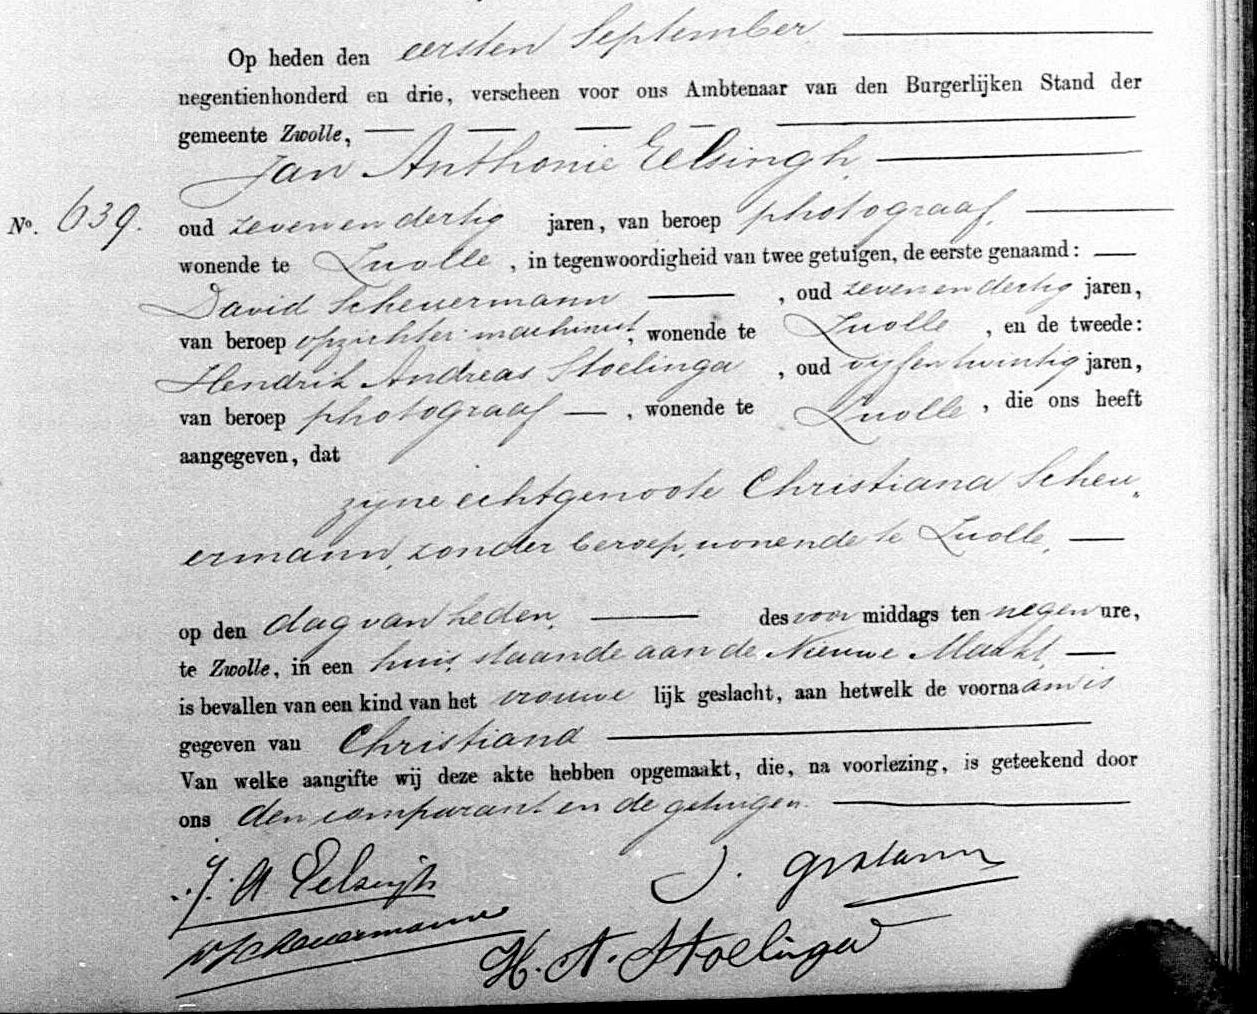 Op heden den eersten September
negentienhonderd en drie, verscheen voor ons Ambtenaar van den Burgerlijken Stand der
gemeente Zwolle,
Jan Anthonie Eelsingh,
No. 639. oud zevenendertig jaren, van beroep photograaf,
wonende te Zwolle, in tegenwoordigheid van twee getuigen, de eerste genaamd:
David Scheuermann, oud zevenendertig jaren,
van beroep opzichter-machinist, wonende te Zwolle, en de tweede:
Hendrik Andreas Stoelinga, oud vyfentwintig jaren,
van beroep photograaf, wonende te Zwolle, die ons heeft
aangegeven, dat
zyne echtgenoote Christiana Scheu„
ermann, zonder beroep, wonende te Zwolle,
op den dag van heden, des voor middags ten negen ure,
te Zwolle, in een huis, staande aan de Nieuwe Markt,
is bevallen van een kind van het vrouwe lijk geslacht, aan hetwelk de voornaam is
gegeven van Christiana
Van welke aangifte wij deze akte hebben opgemaakt, die, na voorlezing, is geteekend door
ons den comparant en de getuigen.
J. A. Eelsingh
D Scheuermann
H. A. Stoelinga